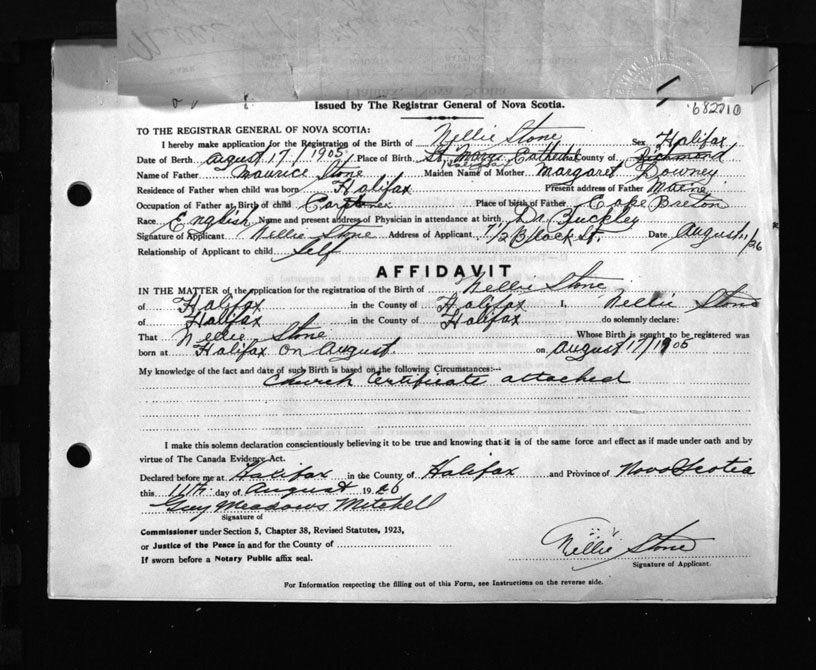 Issued by The Registrar General of Nova Scotia.
682710
TO THE REGISTRAR GENERAL OF NOVA SCOTIA:
I hereby make application for the Registration of the Birth of Nellie Stone Sex Halifax
Date of Berth August 17/1905 Place of Birth St. Marys Cathedral County of Richmond
Halifax
Name of Father Maurice Stone Maiden Name of Mother Margaret Downey
Residence of Father when child was born Halifax Present address of Father Maine
Occupation of Father at Birth of child Carpenter Place of birth of Father Cape Breton
Race English Name and present address of Physician in attendance at birth Dr. Buckley
Signature of Applicant Nellie Stone Address of Applicant 7 1/2 Black St. Date August 11/26
Relationship of Applicant to child Self
AFFIDAVIT
IN THE MATTER of the application for the registration of the Birth of Nellie Stone
of Halifax in the County of Halifax I, Nellie Stone
of Halifax in the County of Halifax do solemnly declare:
That Nellie Stone Whose Birth is sought to be registered was
born at Halifax on August on August 17/1905
My knowledge of the fact and date of such Birth is based on the following Circumstances:—
Church Certificate attached
I make this solemn declaration conscientiously believing it to be true and knowing that it is of the same force and effect as if made under oath and by
virtue of The Canada Evidence Act.
Declared before me at Halifax in the County of Halifax and Province of Nova Scotia
this 11th day of August 1926
Guy Meadows Mitchell
Signature of
Commissioner under Section 5, Chapter 38, Revised Statutes, 1923,
or Justice of the Peace in and for the County of
If sworn before a Notary Public affix seal.
Nellie Stone
Signature of Applicant.
For Information respecting the filling out of this Form, see Instructions on the reverse side.